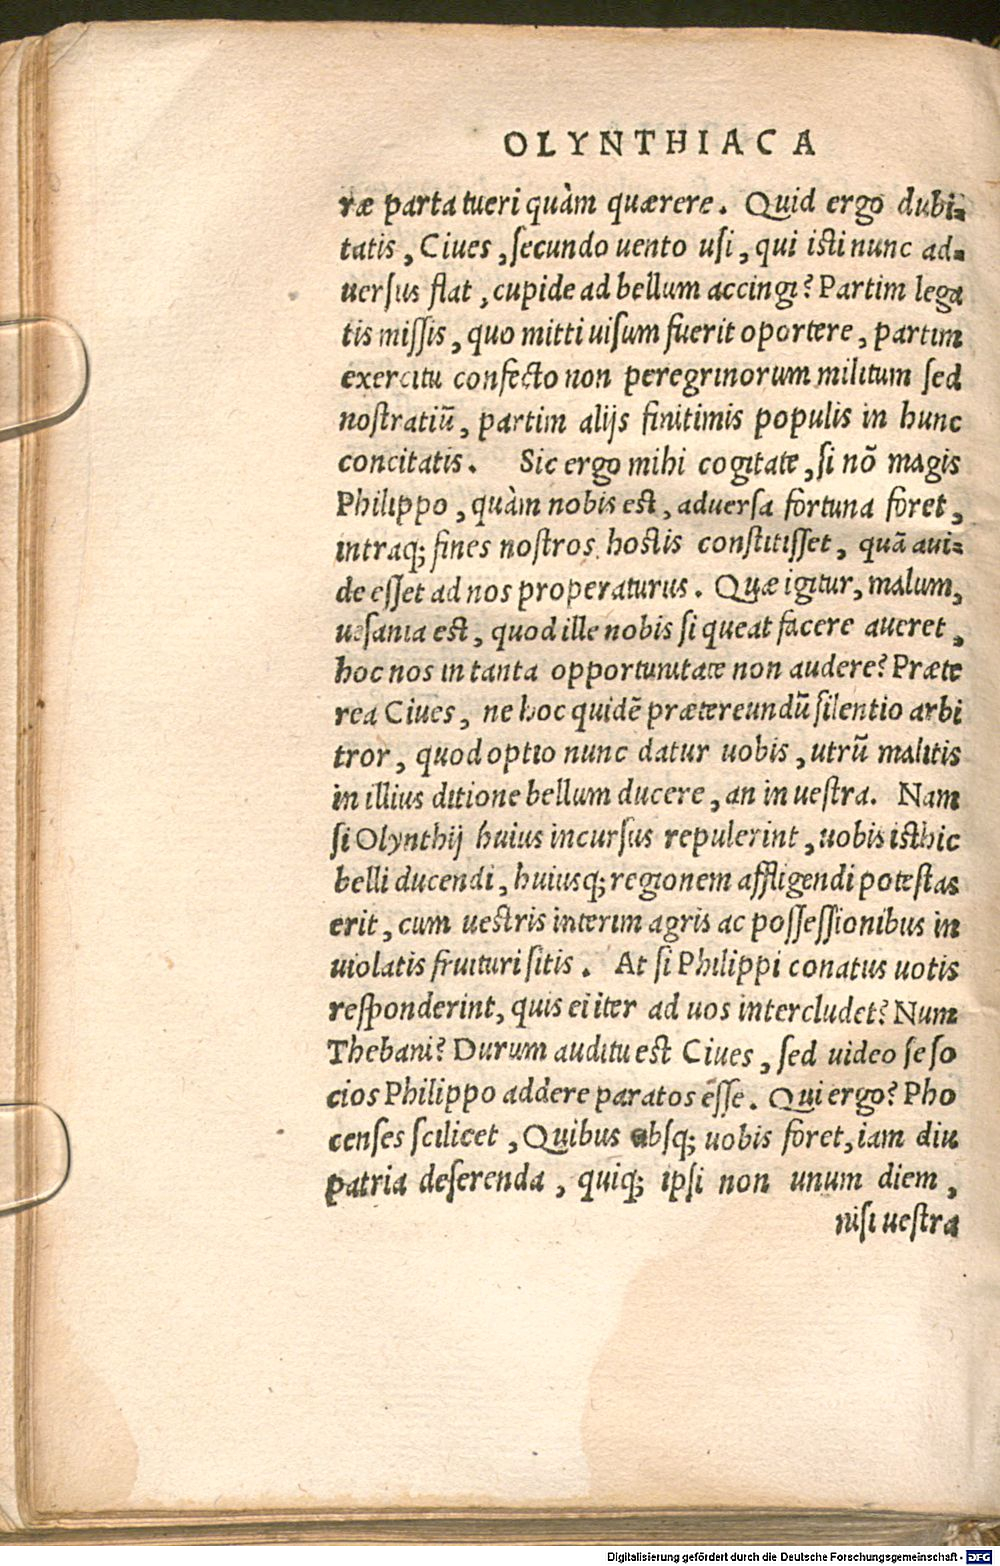 OLYNTHIACA
ræ parta tueri quàm quærere. Quid ergo dubi-
tatis, Ciues, secundo uento usi, qui isti nunc ad-
uersus flat, cupide ad bellum accingi? Partim lega
tis missis, quo mitti uisum fuerit oportere, partim
exercitu confecto non peregrinorum militum sed
nostratiũ, partim alijs finitimis populis in hunc
concitatis. Sic ergo mihi cogitate, si nõ magis
Philippo, quàm nobis est, aduersa fortuna foret,
intraq; fines nostros hostis constitisset, quã aui-
de esset ad nos properaturus. Quæ igitur, malum,
uesania est, quod ille nobis si queat facere aueret,
hoc nos in tanta opportunitate non audere? Præte
rea Ciues, ne hoc quidẽ prætereundũ silentio arbi
tror, quod optio nunc datur uobis, utrũ malitis
in illius ditione bellum ducere, an in uestra. Nam
si Olynthij huius incursus repulerint, uobis isthic
belli ducendi, huiusq; regionem affligendi potestas
erit, cum uestris interim agris ac possessionibus in
uiolatis fruituri sitis. At si Philippi conatus uotis
responderint, quis ei iter ad uos intercludet? Num
Thebani? Durum auditu est Ciues, sed uideo se so
cios Philippo addere paratos esse. Qui ergo? Pho
censes scilicet, Quibus absq; uobis foret, iam diu
patria deserenda, quiq; ipsi non unum diem,
nisi uestra
Digitalisierung gefördert durch die Deutsche Forschungsgemeinschaft - DFG